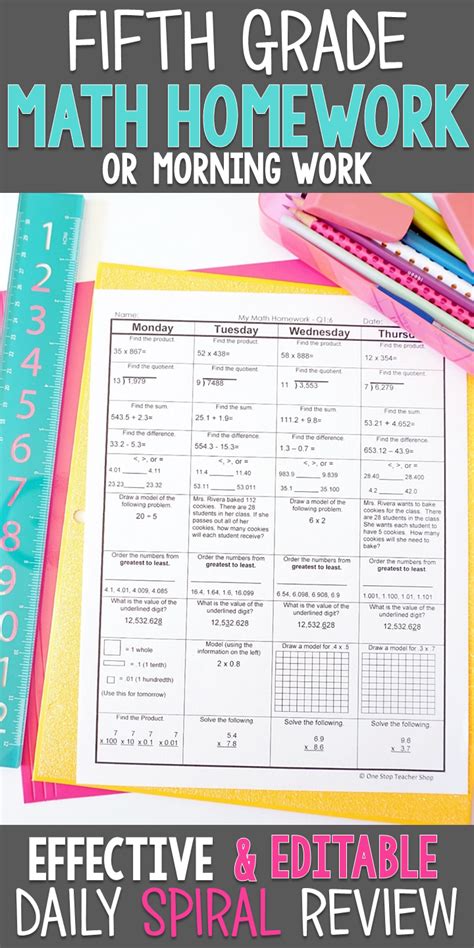 FIFTH GRADE
MATH HOMEWORK
OR MORNING WORK
1
2
3
4
5
6
7
8
9
10
Name: My Math Homework - Q1:6 Date:
Monday Tuesday Wednesday Thursd
Find the product. Find the product. Find the product. Find the product.
35 x 867= 52 x 438= 58 x 888= 12 x 354=
Find the quotient. Find the quotient. Find the quotient. Find the quotient.
13 1,979 9 7488 11 3,553 7 6,279
Find the sum. Find the sum. Find the sum. Find the sum.
543.5 + 2.3= 25.1 + 1.9= 111.2 + 9.1= 53.21 + 4.3=
Find the difference. Find the difference. Find the difference. Find the difference.
33.2 - 5.3= 51.4 - 9.5= 1.3 – 0.7=
<, >, or = <, >, or = <, >, or = <, >, or =
Draw a model of the following problem.
20 ÷ 5
Mrs. Rivera baked 112 cookies. There are 28 students in her class. If she passes out all of her cookies, how many cookies will each student receive?
Draw a model of the following problem.
6 x 2
Mrs. Rivera wants to bake cookies for the class. There are students in her class. She wants each student to have 5 cookies. How many cookies will she need to bake?
Order the numbers from greatest to least. Order the numbers from greatest to least. Order the numbers from greatest to least. Order the numbers from greatest to least.
4.1, 4.01, 4.009, 4.109 16.4, 1.64, 1.6, 16.04
What is the value of the underlined digit? What is the value of the underlined digit? What is the value of the underlined digit? What is the value of the underlined digit?
12,532.628 12,532.628 12,532.628 12,532.628
= 1 whole
= .1 (1 tenth)
= .01 (1 hundredth)
(Use this for tomorrow)
Model (using the information on the left)
2 x 0.8
Draw a model for .4 x .5
Draw a model for .3 x .7
Find the Product. Solve the following. Solve the following. Solve the following.
7 7 7 7 5.4 6.9 3.4
x 100 x 10 x 0.1 x 0.01 x 7.8 x 8.6 x 7.3
© One Stop Teacher Shop
EFFECTIVE & EDITABLE
DAILY SPIRAL REVIEW